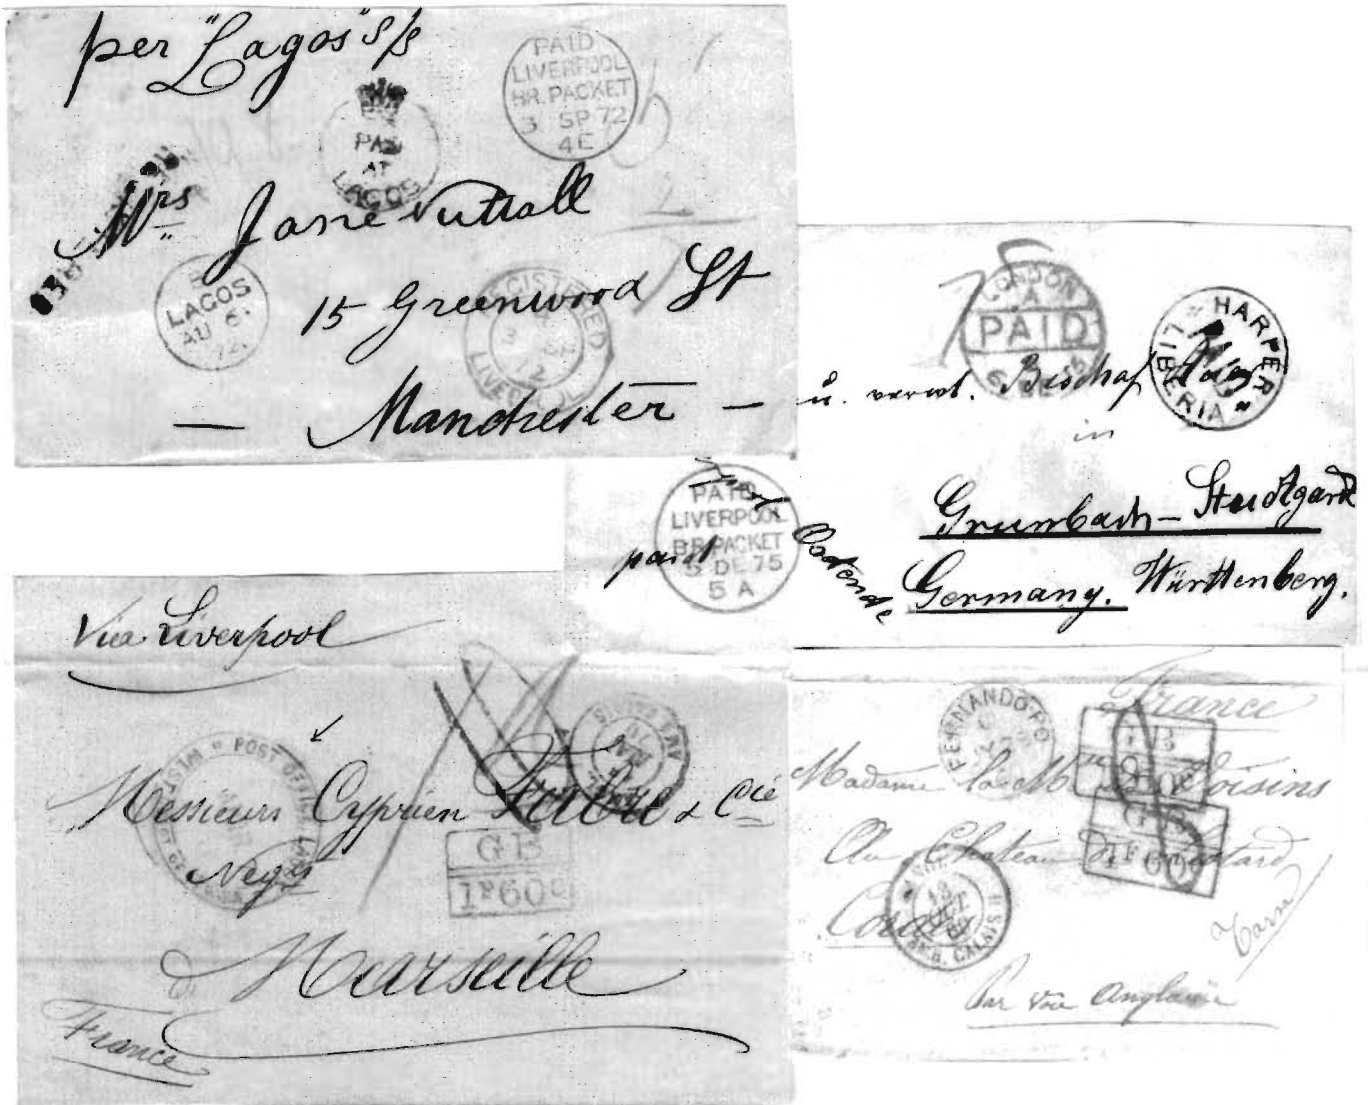 per "Lagos" s/s
PAID
LIVERPOOL
BR. PACKET
3 SP 72
4E
PAID
AT
LAGOS
Mrs Jane Nuttall
LAGOS
AU 6
72
15 Greenwood St
REGISTERED
LIVERPOOL
— Manchester —
LONDON
A
PAID
HARPER
LIBERIA
PAID
u. verwt. Bischof
in
Grunbach - Stuttgard
Germany. Württenberg.
PAID
LIVERPOOL
BR. PACKET
5 DE 75
5 A
paid
Ostende
Via Liverpool
POST OFFICE
WEST
CALAIS
Messieurs Cyprien Fabre & Cie
GB
1F60c
Marseille
France
FERNANDO-PO
France
GB
1F60c
Madame la Mise
GB
1F60c
Au Chateau de
AMB. CALAIS
Tarn
Par voie Anglaise